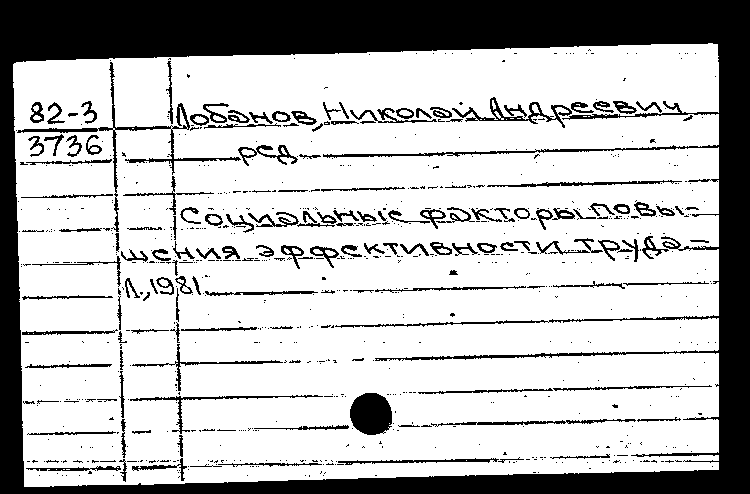 82-3 Лобанов, Николай Андреевич,
3736 ред.
Социальные факторы повы-
шения эффективности труда =
Л., 1981.